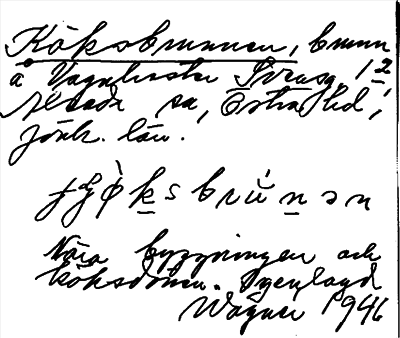 Köksbrunnen, brunn
å Vagnhester Svensg. 1 2
sn, Östra hd,
Jönk. län.
brunən
Nära byggningen och
köksdörren. Igenlagd
Wagner 1946